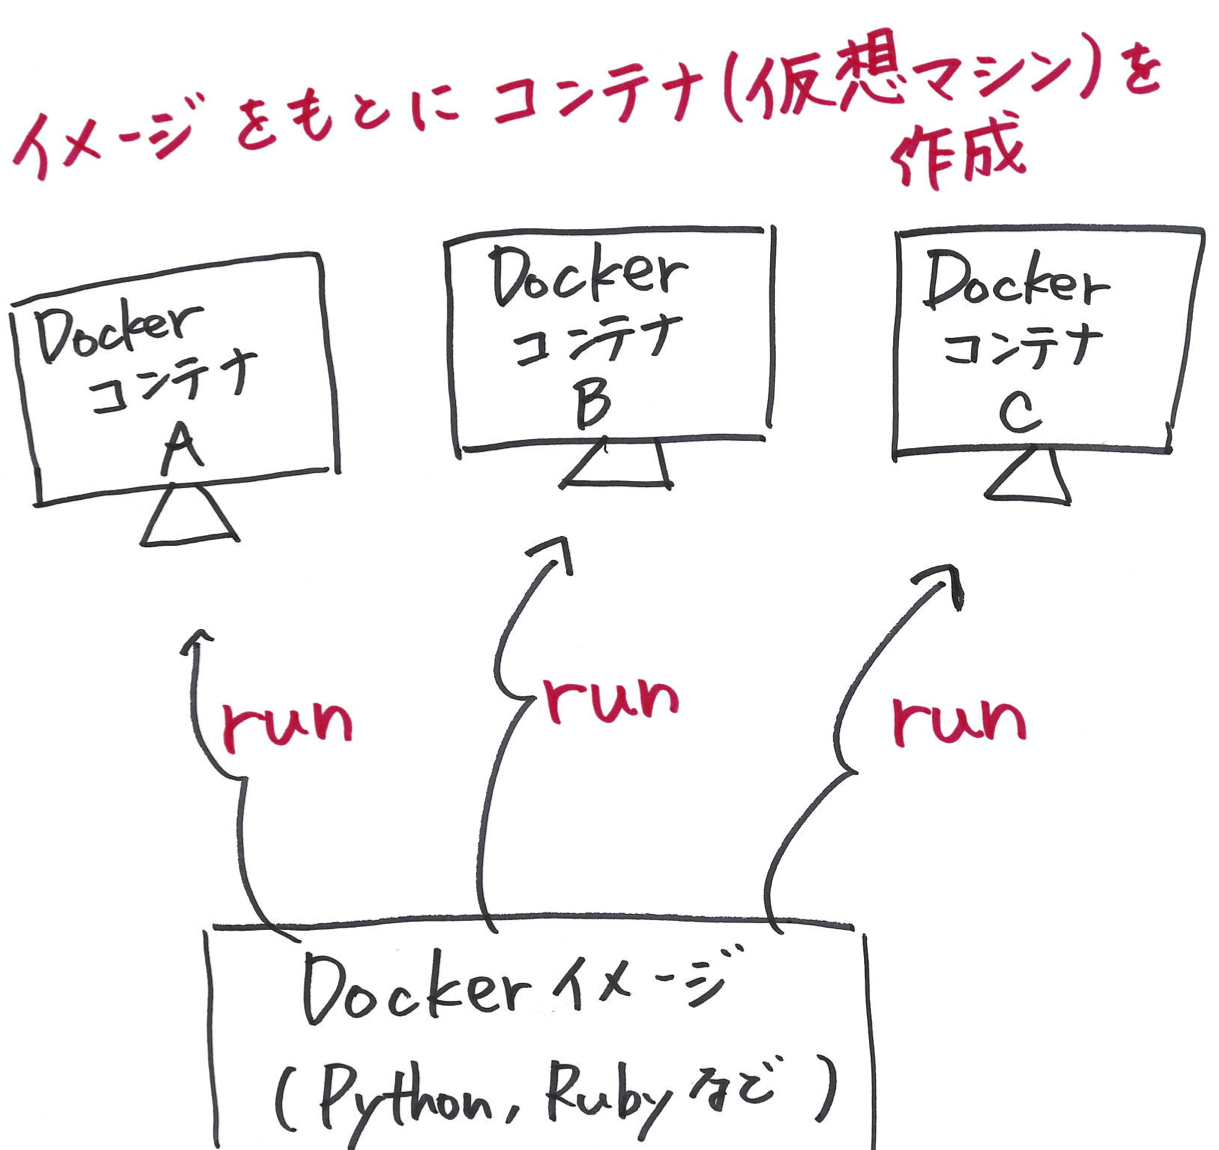 イメージをもとにコンテナ(仮想マシン)を
作成
Docker
コンテナ
A
Docker
コンテナ
B
Docker
コンテナ
C
run
run
run
Dockerイメージ
(Python, Rubyなど)